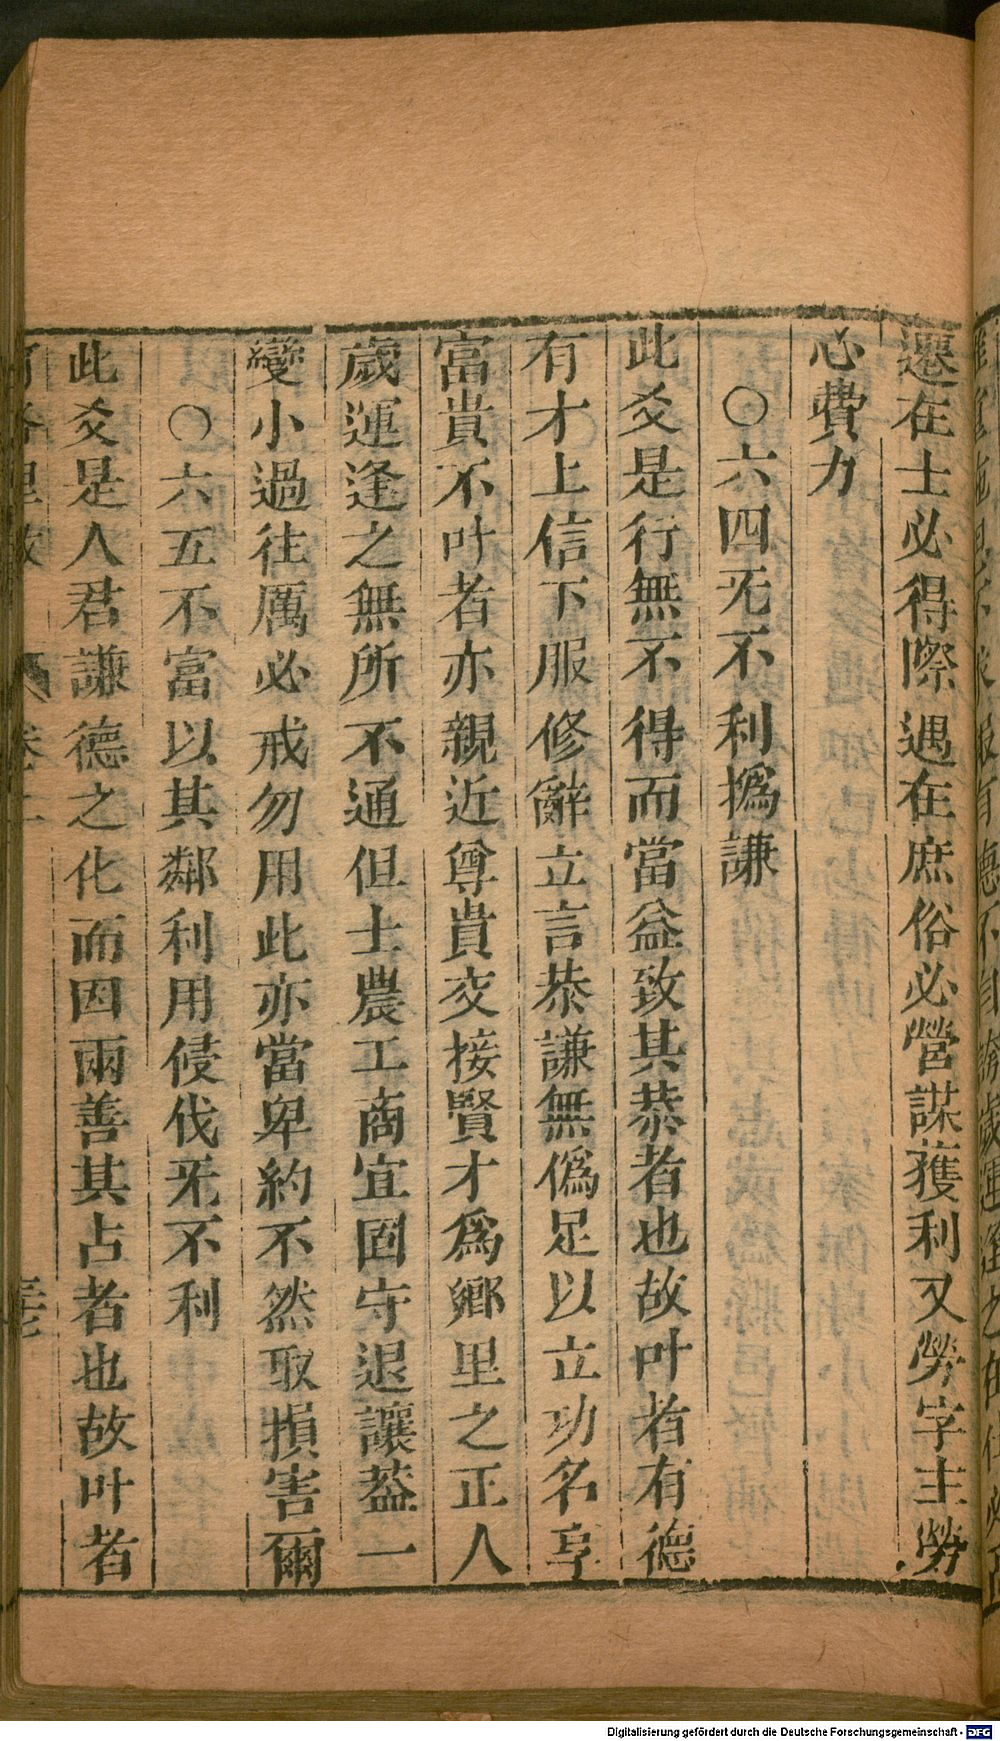 遷在士必得際遇在庶俗必營謀獲利又勞字主勞
心費力
○六四旡不利撝謙
此爻是行無不得而當益致其恭者也故叶者有德
有才上信下服修辭立言恭謙無僞足以立功名享
富貴不叶者亦親近尊貴交接賢才爲鄉里之正人
歲運逢之無所不通但士農工商宜固守退讓葢一
變小過往厲必戒勿用此亦當卑約不然取損害爾
○六五不富以其鄰利用侵伐旡不利
此爻是人君謙德之化而因兩善其占者也故叶者
Digitalisierung gefördert durch die Deutsche Forschungsgemeinschaft - DFG